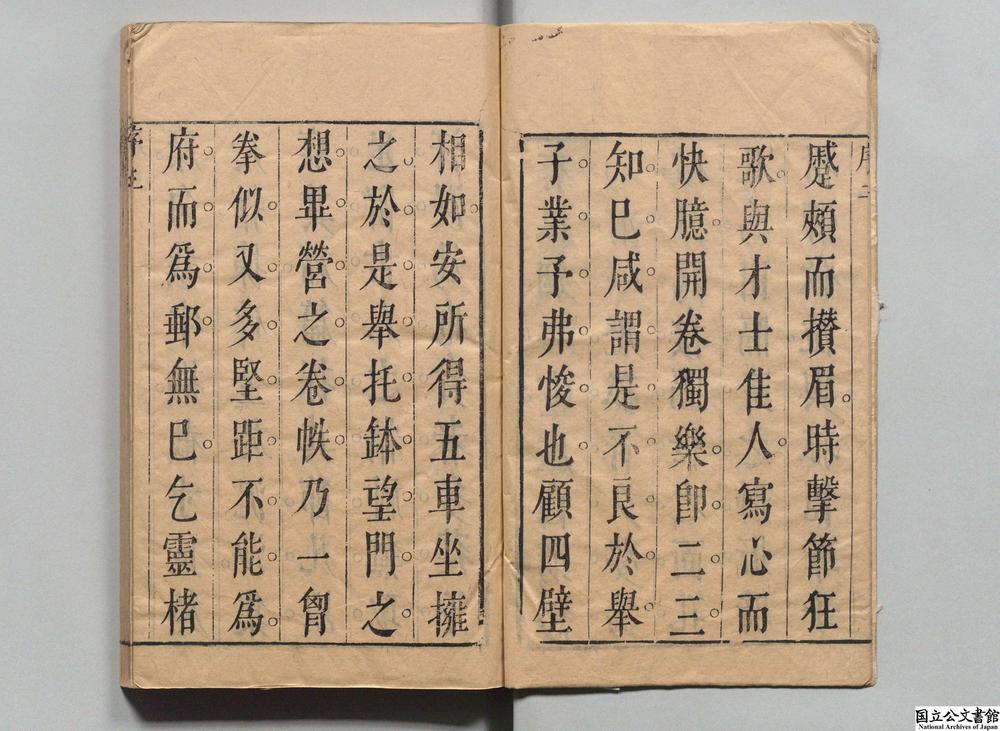 序二
蹙頞而攅眉時擊節狂
歌與才士隹人寫心而
快臆開卷獨樂卽二三
知巳咸謂是不良於舉
子業予弗悛也顧四壁
相如安所得五車坐擁
之於是舉托鉢望門之
想畢營之卷帙乃一曾
拳似又多堅距不能爲
府而爲郵無巳乞靈楮
国立公文書館
National Archives of Japan